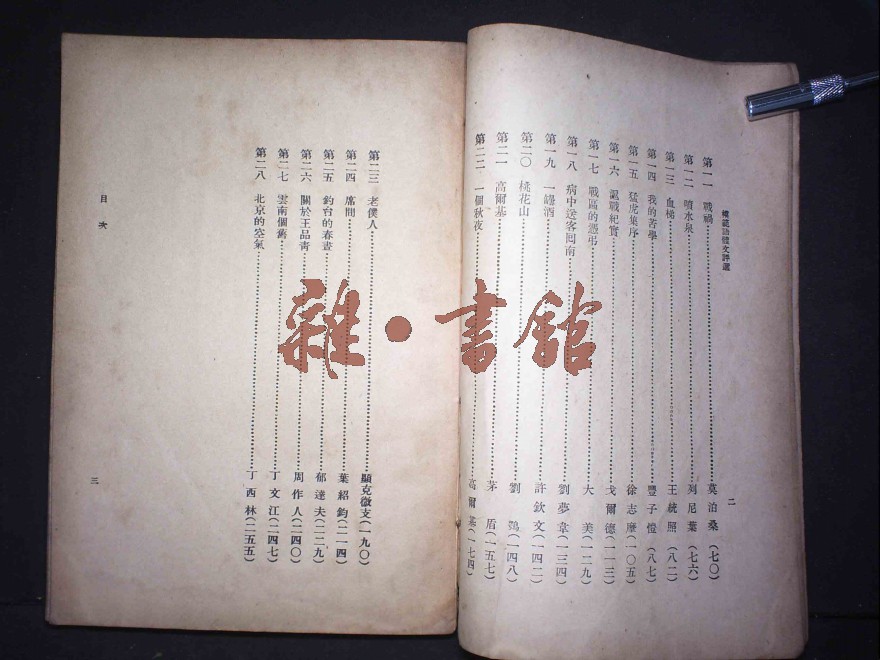 標題語體文評選
第一一 戰禍 莫泊桑（七〇）
第一二 噴水泉 列尼葉（七六）
第一三 血梯 王統照（八二）
第一四 我的苦學 豐子愷（八七）
第一五 猛虎集序 徐志摩（一〇五）
第一六 諷戰紀實 戈爾德（一一三）
第一七 戰區的憑弔 大美（一二九）
第一八 病中送客回南 劉夢葦（一三四）
第一九 一罎酒 許欽文（一四二）
第二〇 桃花山 劉鶚（一四八）
第二一 高爾基 茅盾（一五七）
第二二 一個秋夜 高爾基（一七四）
二
第二三 老僕人 顯克微支（一九〇）
第二四 席間 葉紹鈞（二一四）
第二五 釣台的春晝 郁達夫（二二九）
第二六 關於王品青 周作人（二四〇）
第二七 雲南個舊 丁文江（二四七）
第二八 北京的空氣 丁西林（二五五）
目次
三
雜·書館